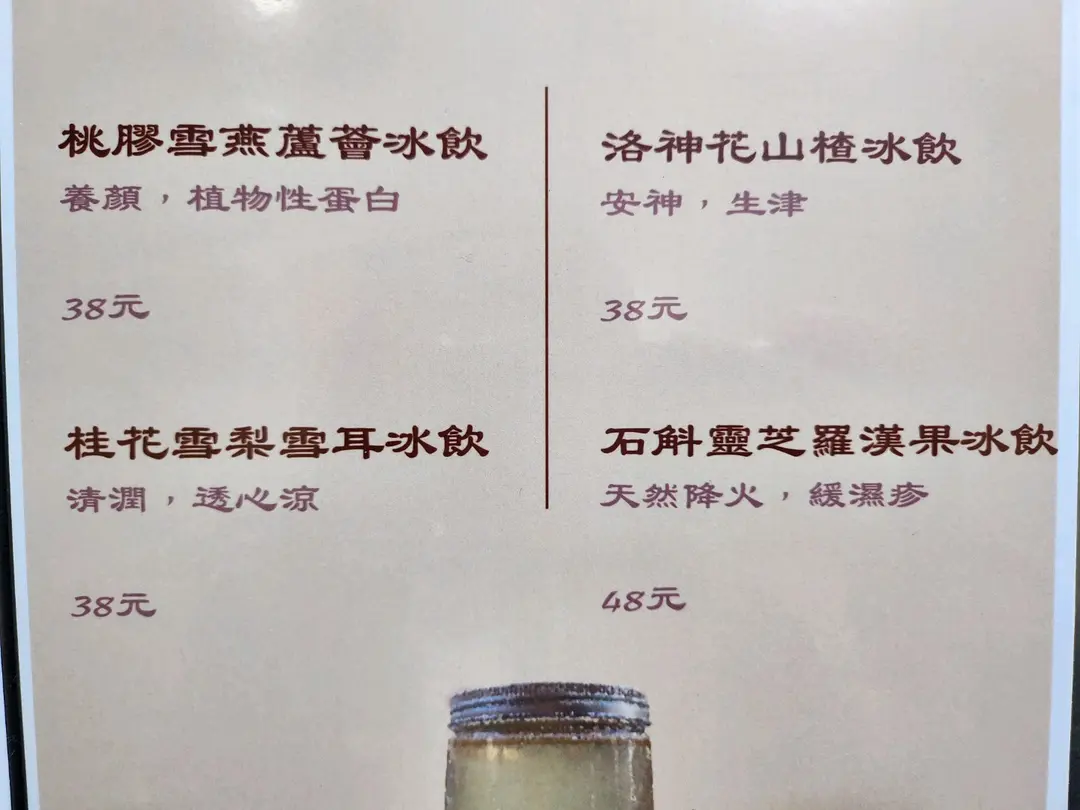 桃膠雪燕蘆薈冰飲
養顏，植物性蛋白
38元
洛神花山楂冰飲
安神，生津
38元
桂花雪梨雪耳冰飲
清潤，透心涼
38元
石斛靈芝羅漢果冰飲
天然降火，緩濕疹
48元